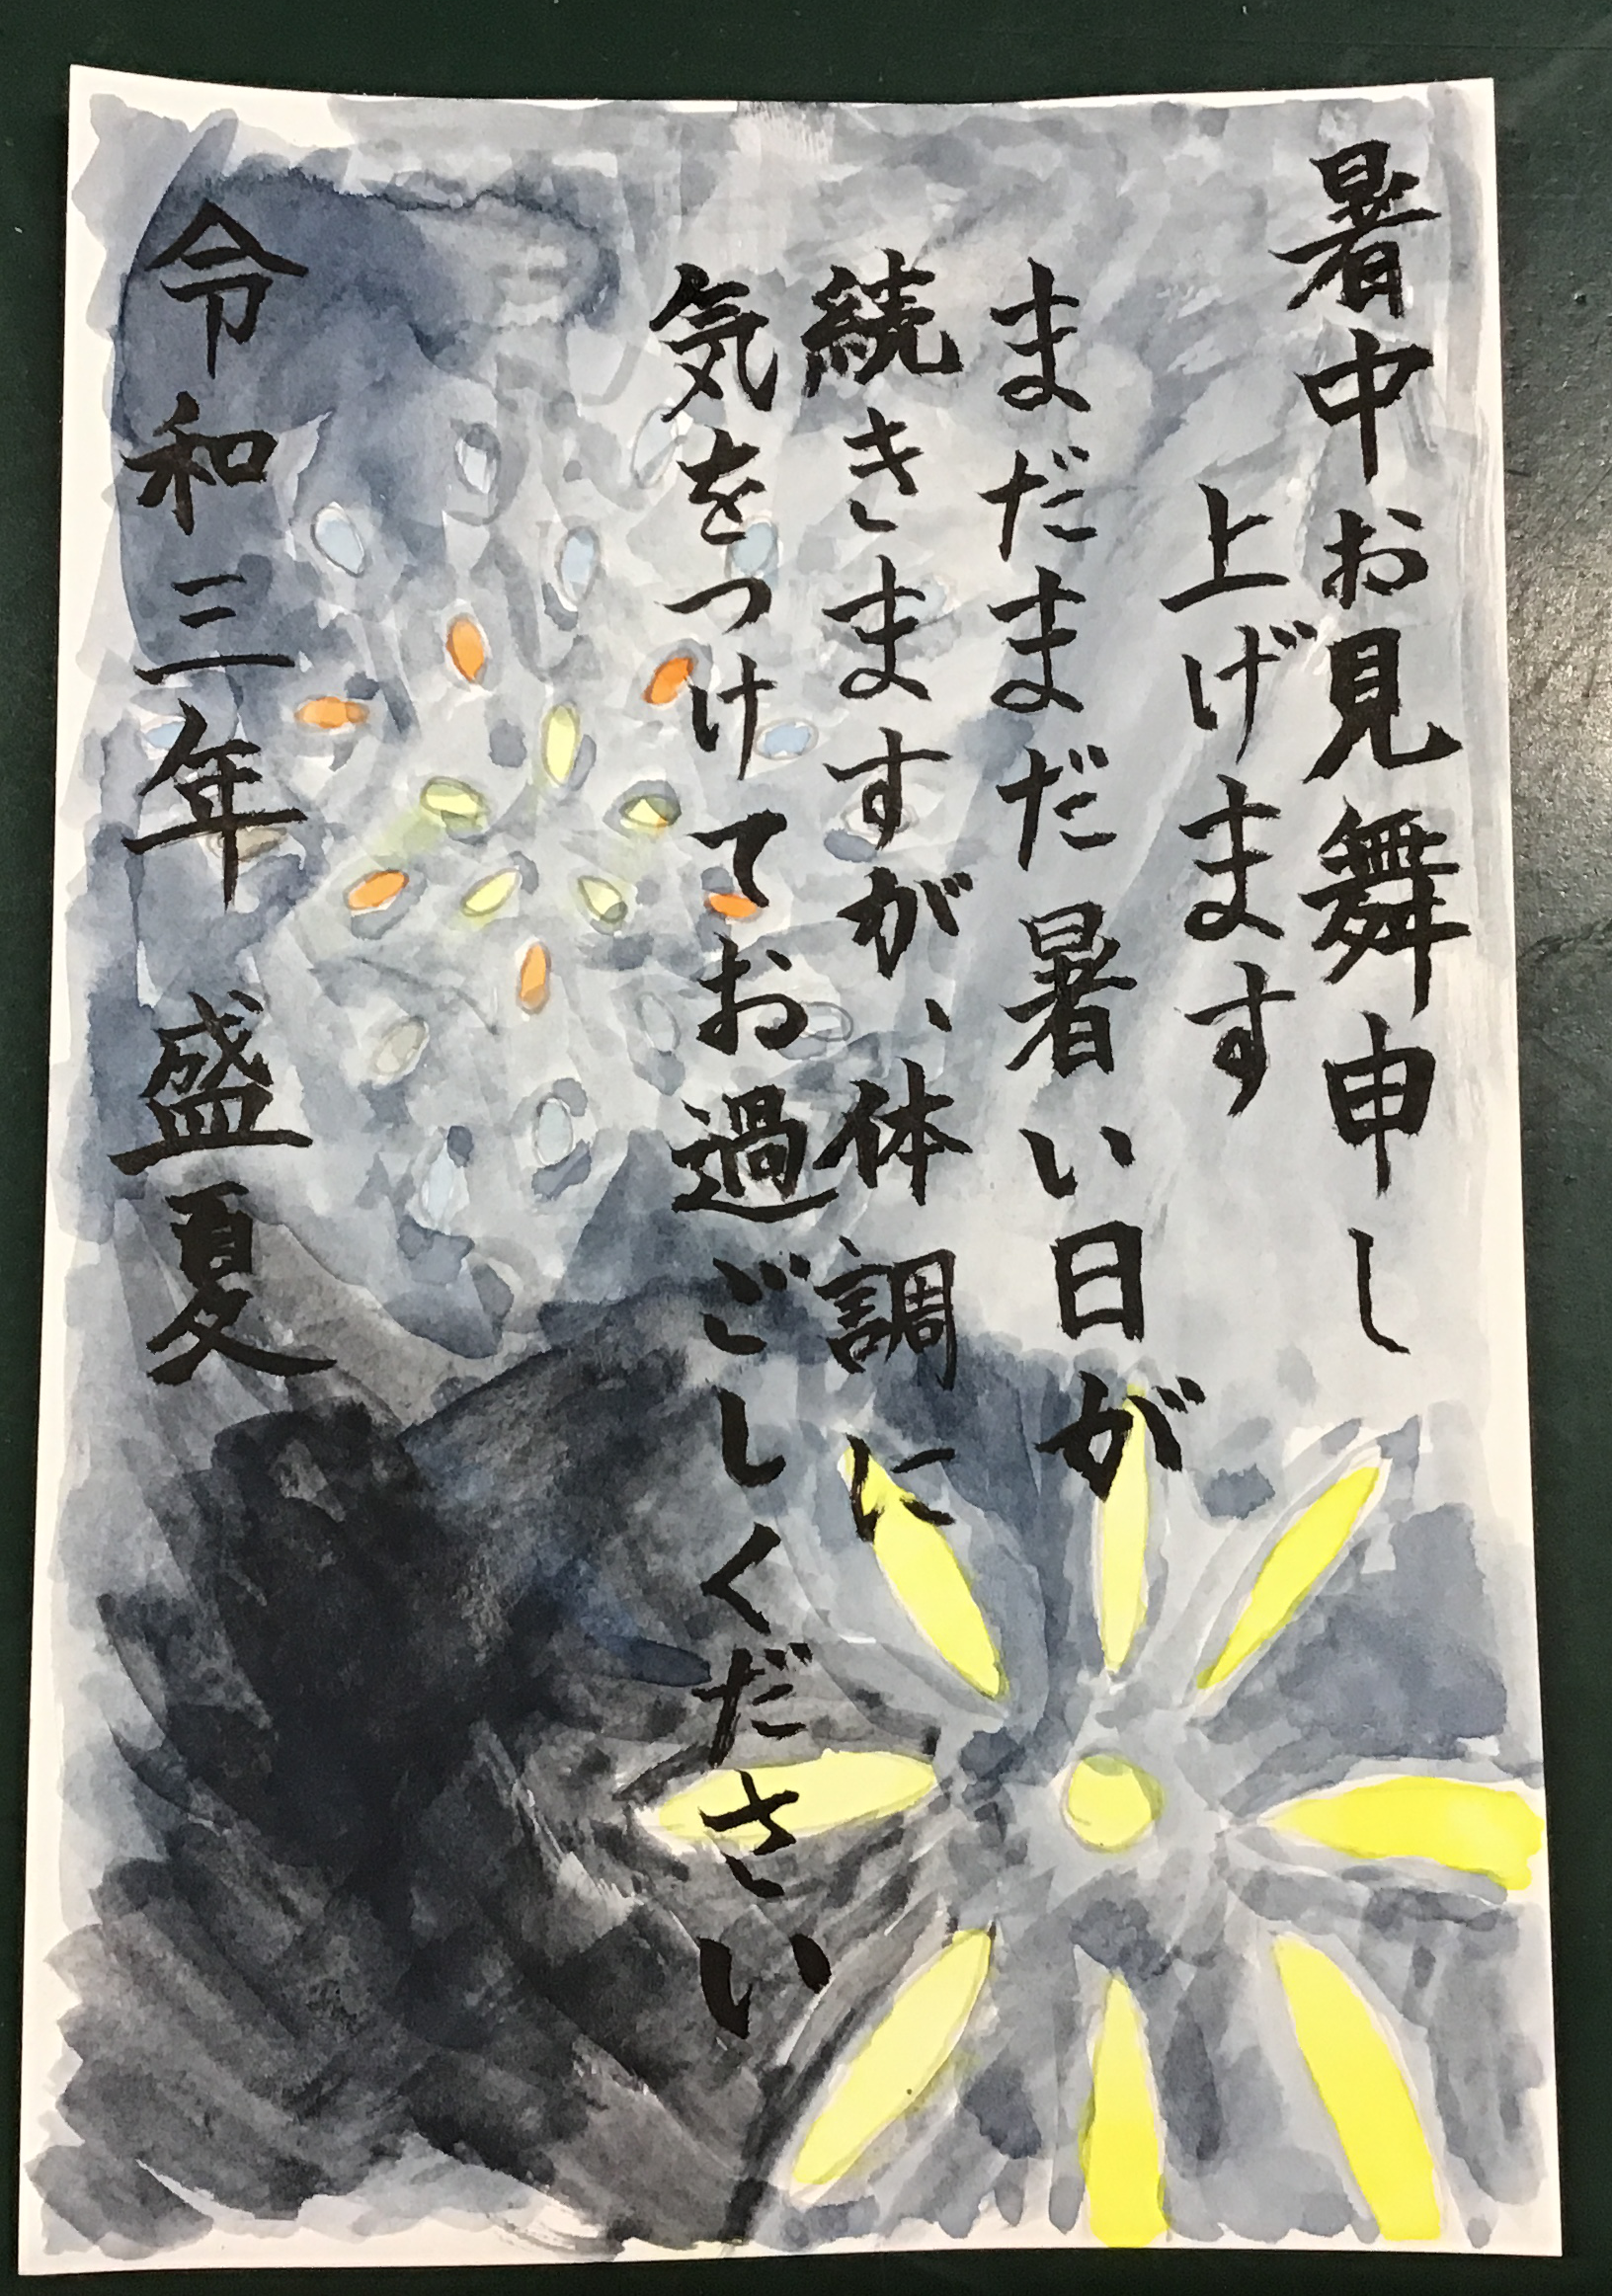 暑中お見舞申し
上げます
まだまだ暑い日が
続きますが、体調に
気をつけてお過ごしください
令和三年 盛夏